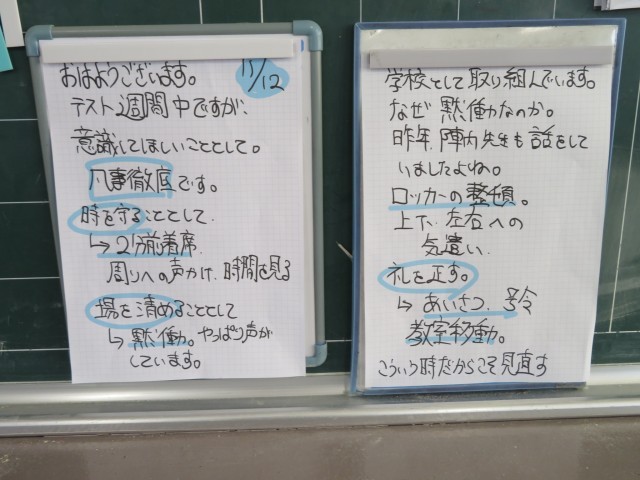 おはようございます。 11/12
テスト週間中ですが、
意識してほしいこととして。
凡事徹底です。
時を守ることとして、
↳ 2分前着席
周りへの声かけ、時間を見る
場を清めることとして
↳ 黙働。やっぱり声が
しています。
学校として取り組んでいます。
なぜ黙働なのか。
昨年、陣内先生も話をして
いましたよね。
ロッカーの整頓。
上下、左右への
気遣い、
礼を正す。
↳ あいさつ、号令
教室移動。
こういう時だからこそ見直す